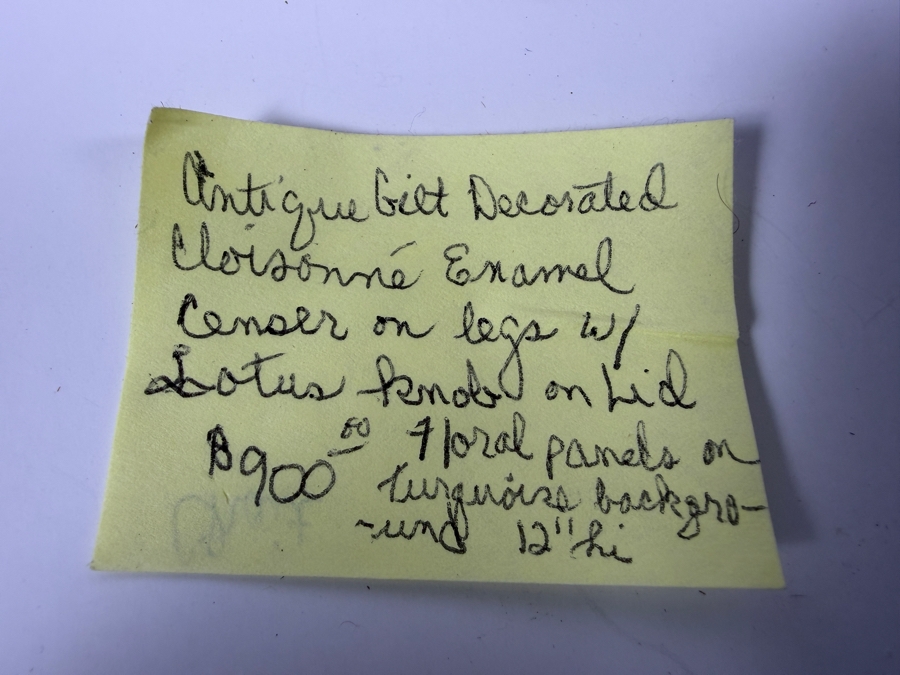 Antique Gilt Decorated
Cloisonné Enamel
Censer on legs w/
Lotus knob on Lid
$900.00 Floral panels on
turquoise backgro-
-und 12" hi